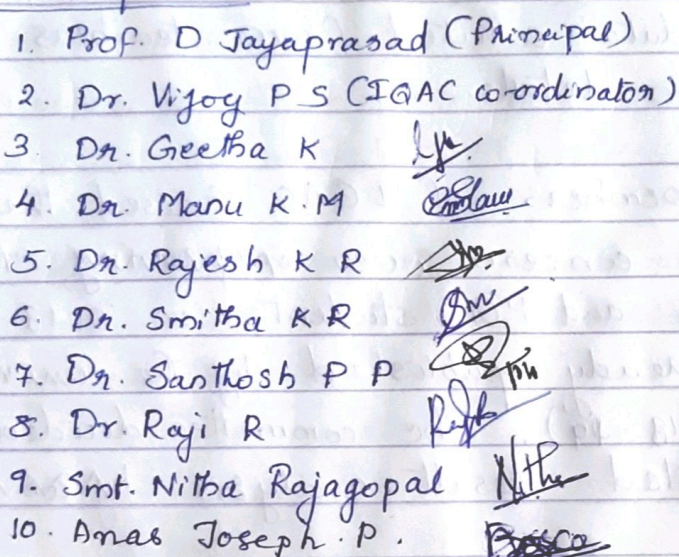 1. Prof. D Jayaprasad (Principal)
2. Dr. Vijoy P S (IQAC co-ordinator)
3. Dr. Geetha K
4. Dr. Manu K. M
5. Dr. Rajesh K R
6. Dr. Smitha K R
7. Dr. Santhosh P P
8. Dr. Raji R
9. Smt. Nitha Rajagopal Nitha
10. Anas Joseph. P.